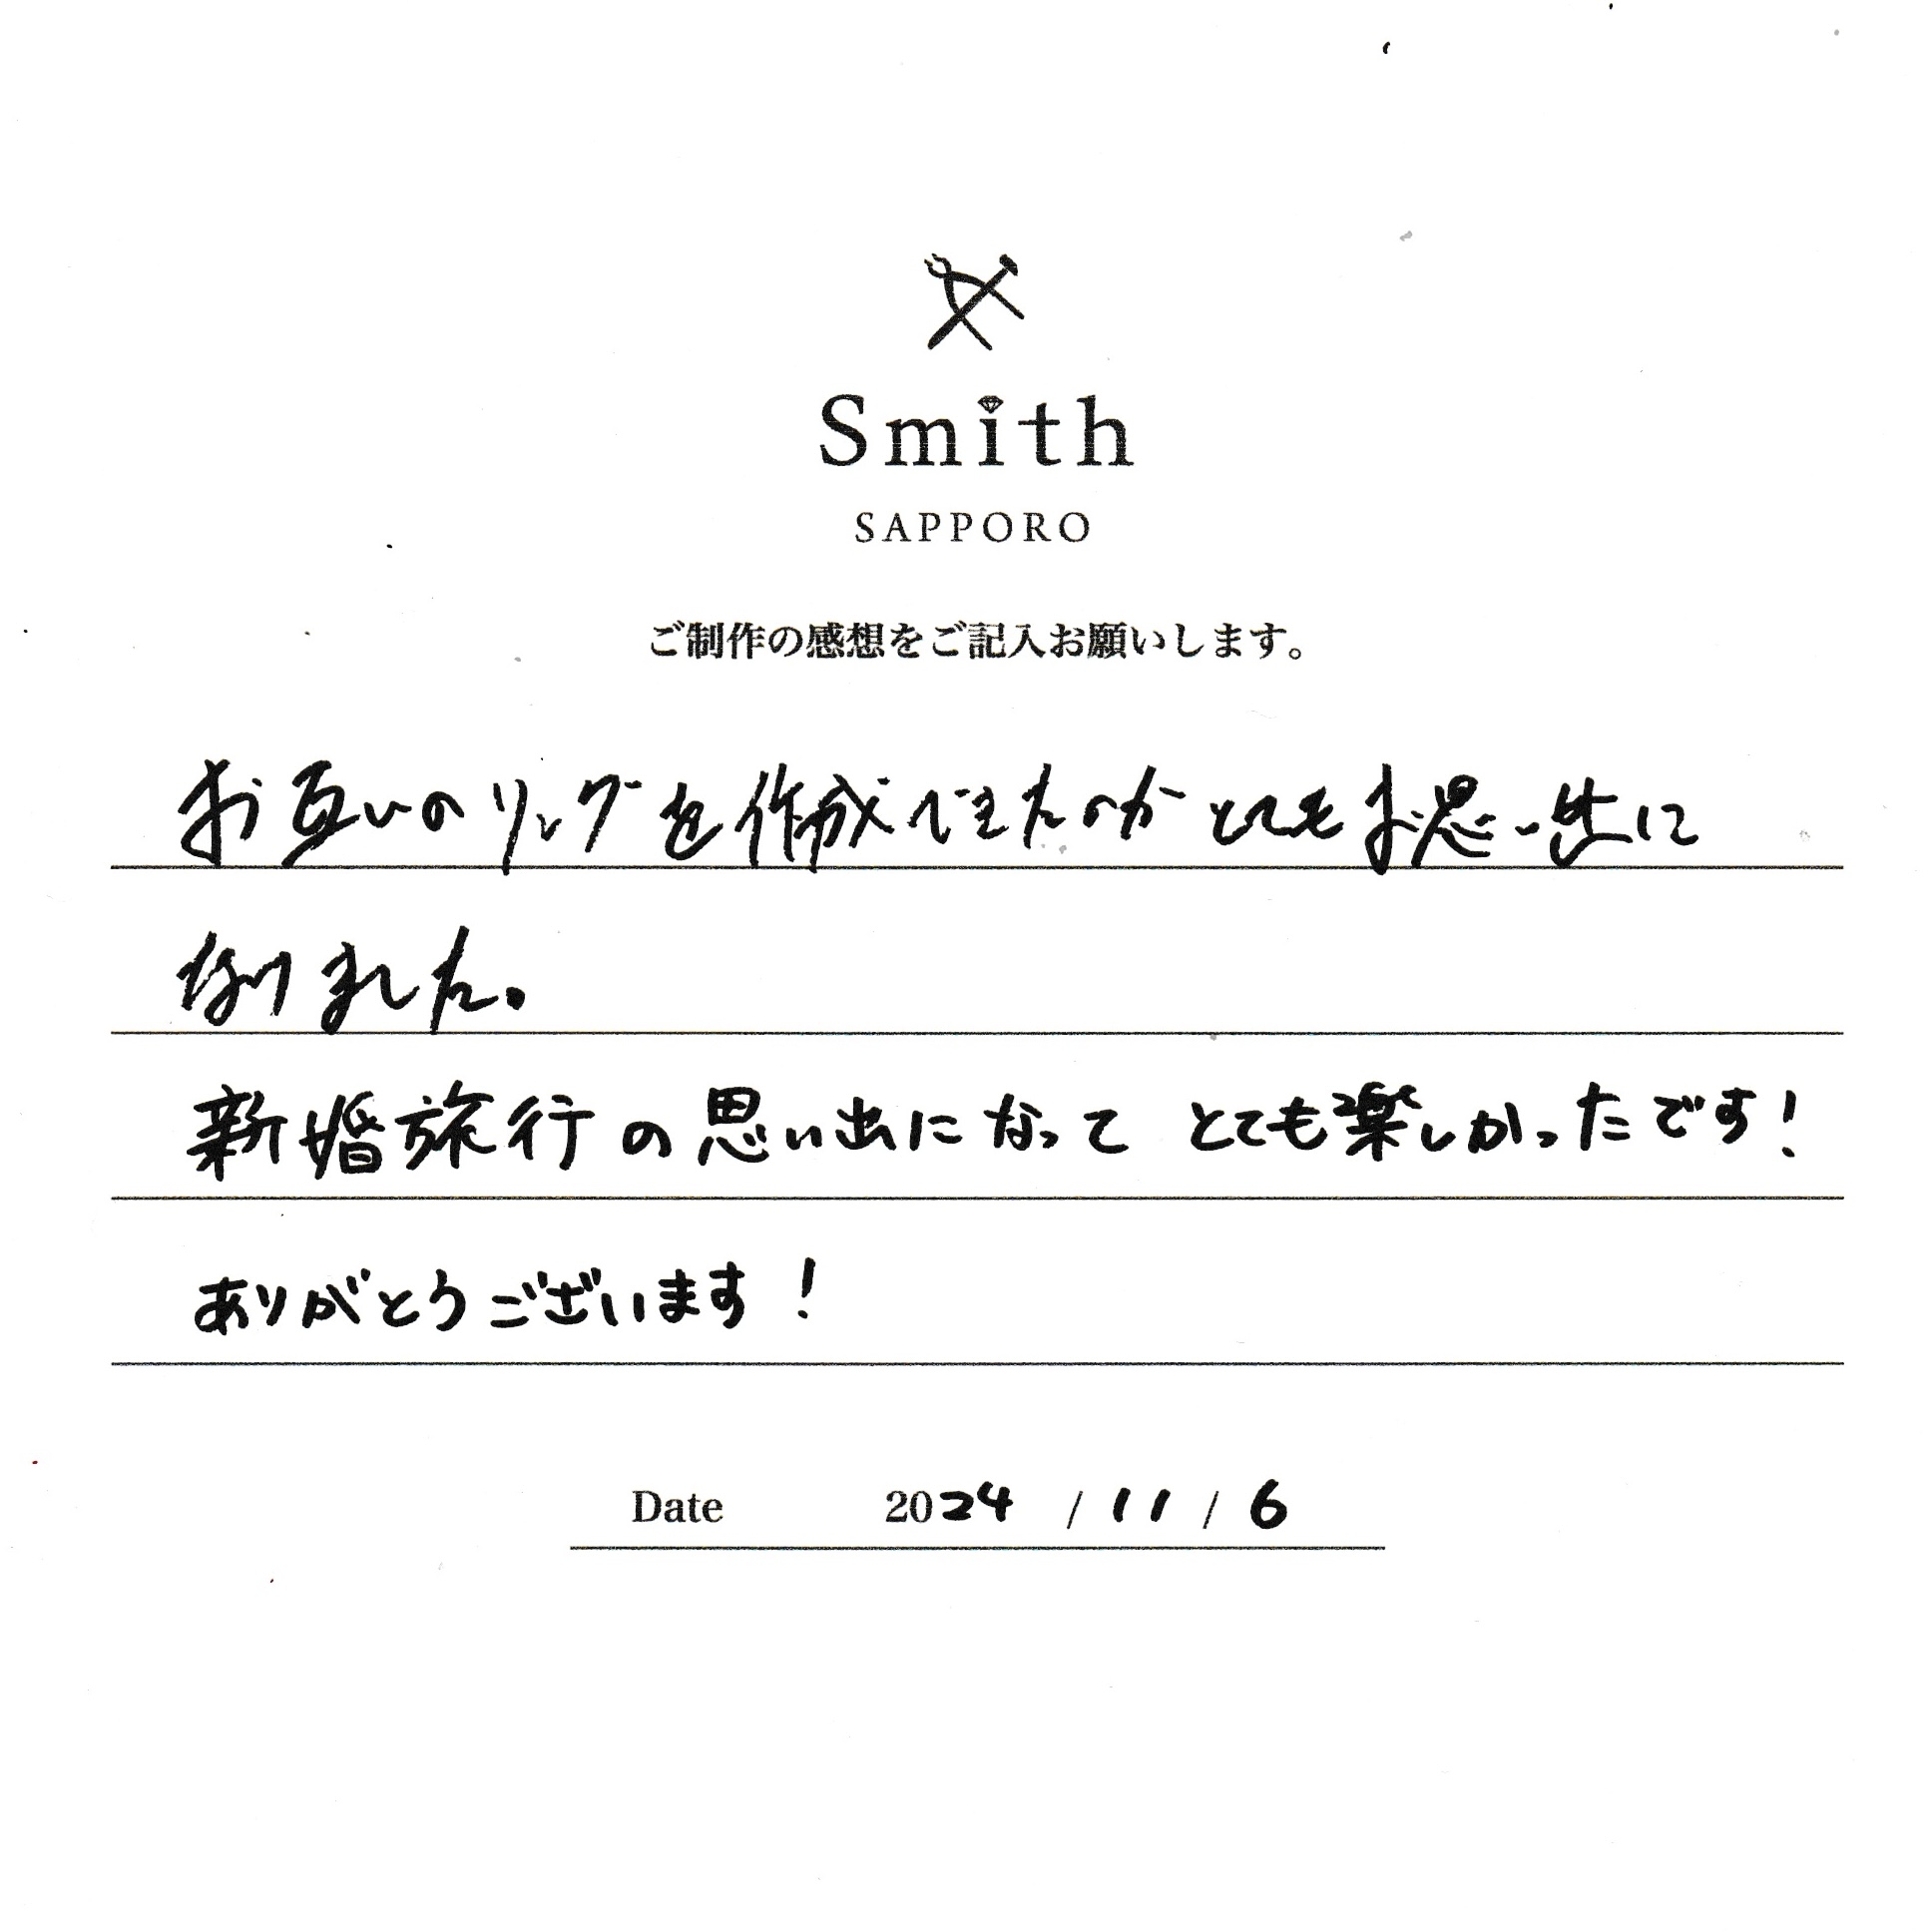 Smith
SAPPORO
ご制作の感想をご記入お願いします。
お互いのリングを作成できたのがとてもお思い出に
なりました。
新婚旅行の思い出になって とても楽しかったです!
ありがとうございます!
Date 2024 / 11 / 6